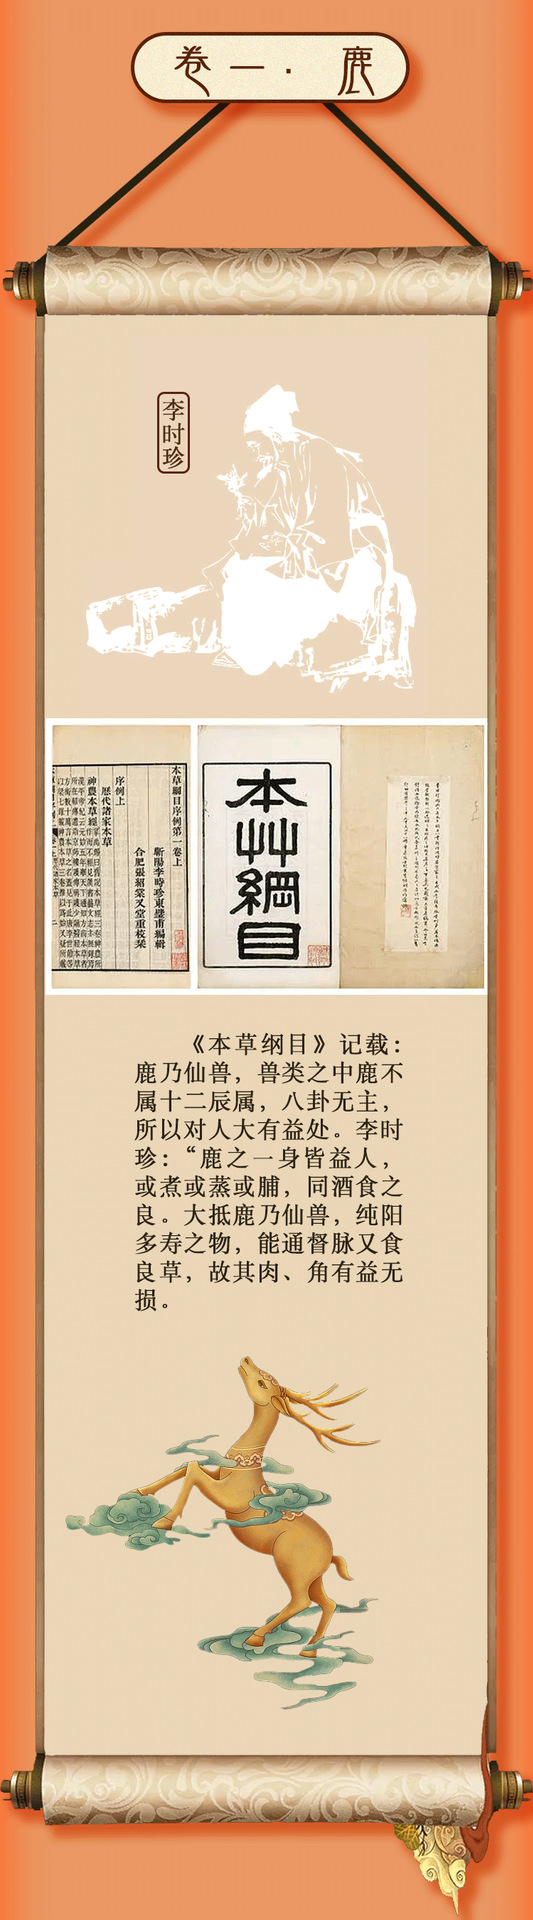 卷一·鹿
李时珍
本草綱目序例第一卷上
蘄陽李時珍東璧甫編輯
合肥張紹棠又堂重校栞
序例上
歷代諸家本草
本艸綱目
《本草纲目》记载：
鹿乃仙兽，兽类之中鹿不
属十二辰属，八卦无主，
所以对人大有益处。李时
珍：“鹿之一身皆益人，
或煮或蒸或脯，同酒食之
良。大抵鹿乃仙兽，纯阳
多寿之物，能通督脉又食
良草，故其肉、角有益无
损。